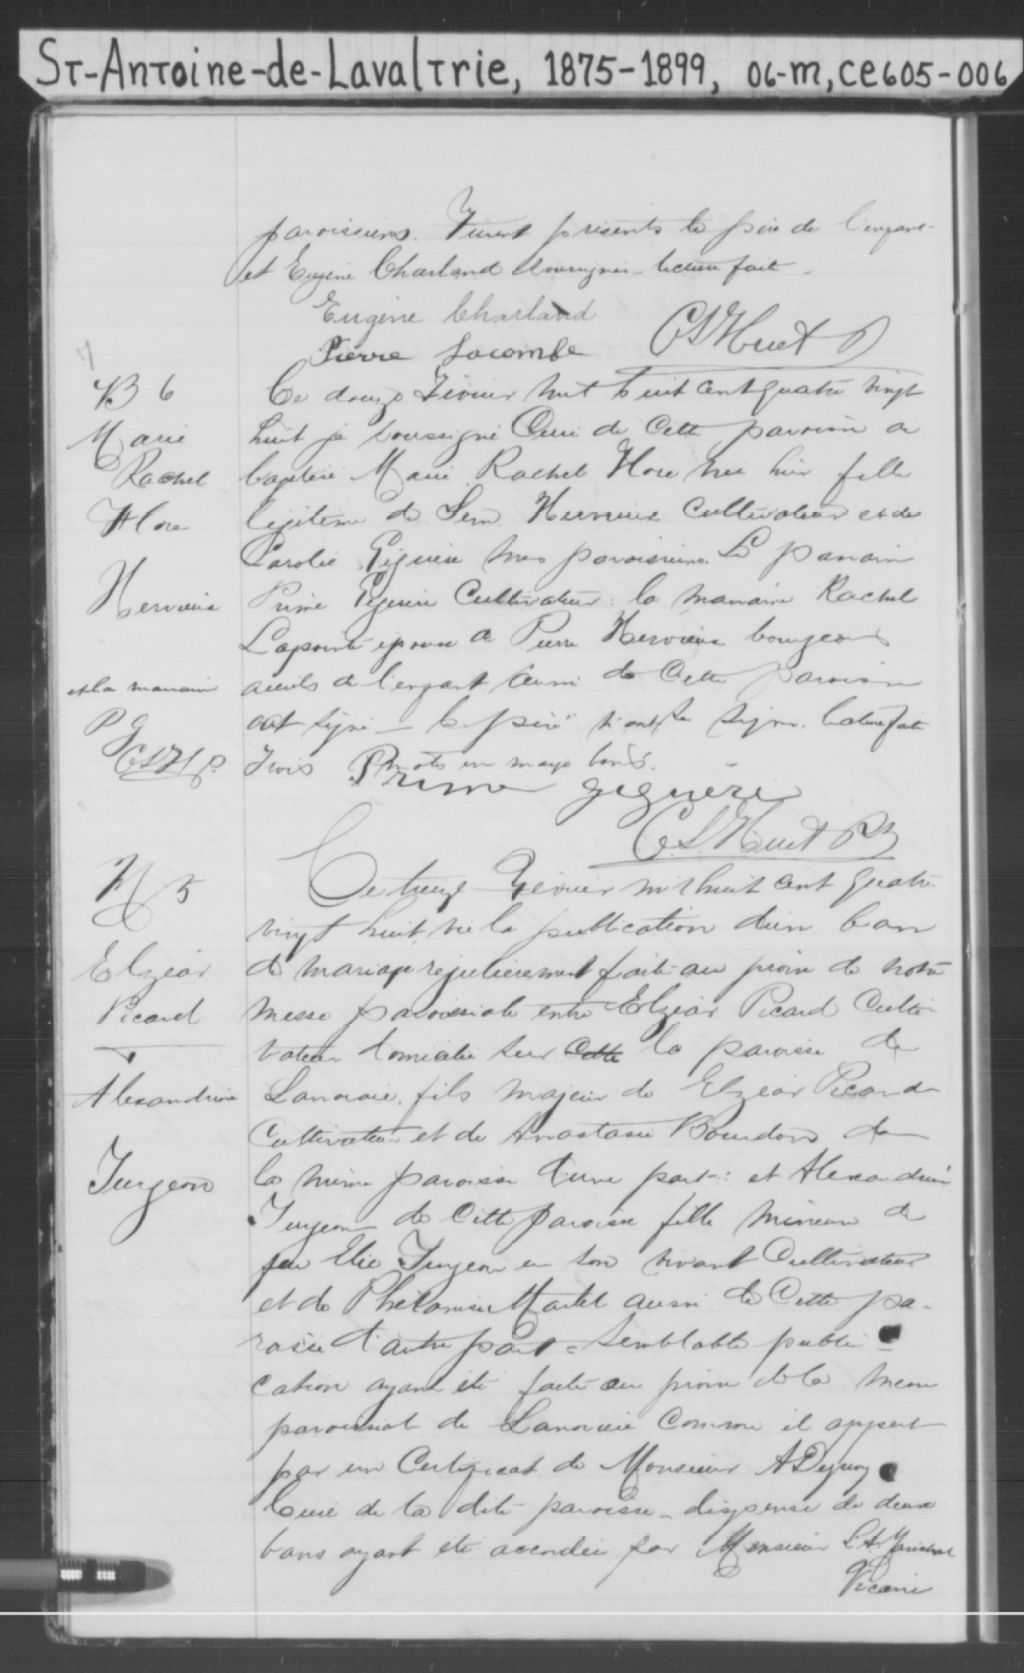 ST-ANTOINE-de-LavalTrie, 1875-1899, 06-m, ce605-006
paroissiens. Furent présents le père de l'enfant
et Eugène Charland soussignés - lecture faite -
Eugène Charland
Pierre Lacombe CSHuet P
B 6
Marie
Rachel
Flore
Hervieux
et la marraine
P G
CSH p.
Ce douze Février mil huit cent quatre vingt
huit je soussigné Curé de cette paroisse ai
baptisé Marie Rachel Flore née hier fille
légitime de Sem Hervieux Cultivateur et de
Giguère mes paroissiens. Le parrain
Prime Giguère Cultivateur: la marraine Rachel
Lapointe épouse de Pierre Hervieux bourgeois
aieuls de l'enfant aussi de Cette Paroisse
ont signé - le père n'ont su signer. lecture faite
Trois mots en marge bons.
Prime giguère
C.S.Huet P
M 5
Elzéar
Picard
Alexandrine
Turgeon
Ce treize Février mil huit cent quatre
vingt huit, vu la publication d'un ban
de mariage régulièrement faite au prône de notre
messe paroissiale entre Elzéar Picard Culti-
vateur domicilié sur Cette la paroisse de
Lanoraie, fils majeur de Elzéar Picard
Cultivateur et de Anastasie Bourdon de
la même paroisse d'une part: et Alexandrine
Turgeon de Cette paroisse fille mineure de
feu Elie Turgeon en son vivant Cultivateur
et de Philomène Martel aussi de Cette pa-
roisse d'autre part = semblable publi-
cation ayant été faite au prône de la messe
paroissiale de Lanoraie comme il appert
par un Certificat de Monsieur A
Curé de la dite paroisse - dispense de deux
bans ayant été accordée par Monsieur
Vicaire